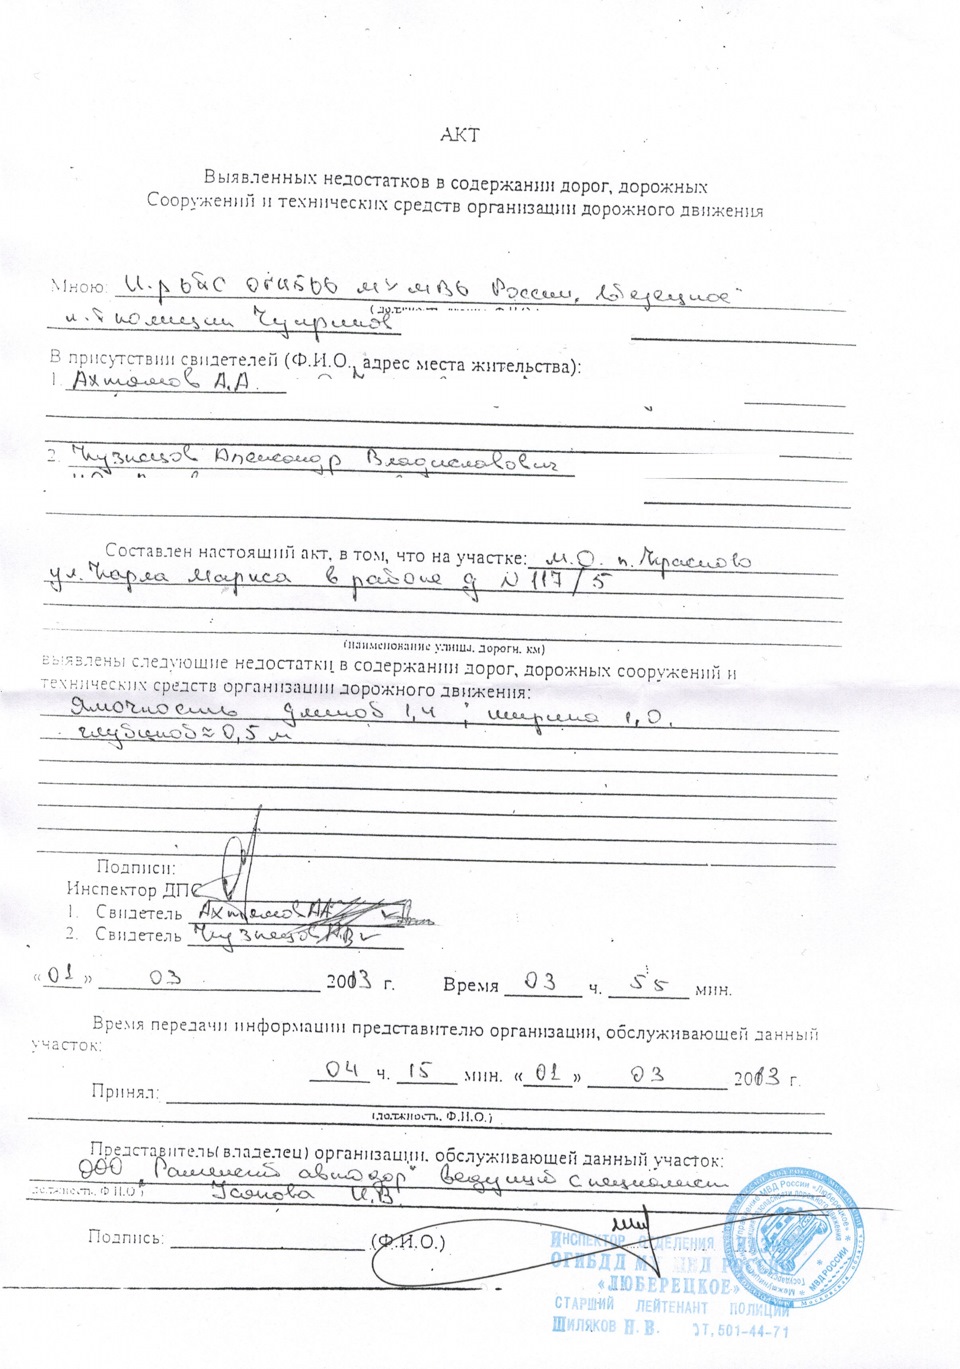 АКТ
Выявленных недостатков в содержании дорог, дорожных
Сооружений и технических средств организации дорожного движения
Мною: ОГИБДД МУ МВД России
л-т полиции
В присутствии свидетелей (Ф.И.О., адрес места жительства):
1. Ахтямов А.А.
2. Кузнецов Александр Владиславович
Составлен настоящий акт, в том, что на участке: М.О. п. Красково
ул. Карла Маркса в районе д N 117/5
(наименование улицы, дороги, км)
выявлены следующие недостатки в содержании дорог, дорожных сооружений и
технических средств организации дорожного движения:
Ямочность длиной 1,4; ширина 1,0,
глубиной ≈ 0,5 м
Подписи:
Инспектор ДПС
1. Свидетель Ахтямов АА
2. Свидетель Кузнецов А.В
«01» 03 2013 г. Время 03 ч. 55 мин.
Время передачи информации представителю организации, обслуживающей данный
участок:
04 ч. 15 мин. «01» 03 2013 г.
Принял:
(должность, Ф.И.О.)
Представитель(владелец) организации, обслуживающей данный участок:
ООО автодор" ведущий специалист
должность, Ф И О) И.В
Подпись: (Ф.И.О.)
ИНСПЕКТОР ОТДЕЛЕНИЯ
ОГИБДД МУ МВД
«ЛЮБЕРЕЦКОЕ»
СТАРШИЙ ЛЕЙТЕНАНТ ПОЛИЦИИ
ШИЛЯКОВ Н.В. Т.501-44-71